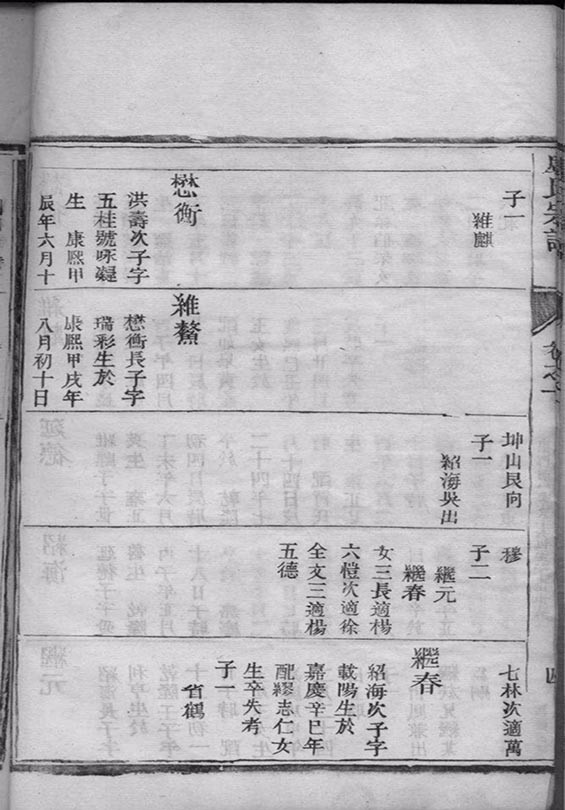 氏宗譜
卷之
四
子一
雒麒
懋衡
洪壽次子字
五桂號咏
生 康熙甲
辰年六月十
雒鰲
懋衡長子字
瑞彩生於
康熙甲戌年
八月初十日
坤山艮向
子一
紹海吳出
穆
子二
繼元
繼春
女三長適楊
六愷次適徐
全文三適楊
五德
七林次適萬
繼春
紹海次子字
載陽生於
嘉慶辛巳年
配繆志仁女
生卒失考
子一
省鶴